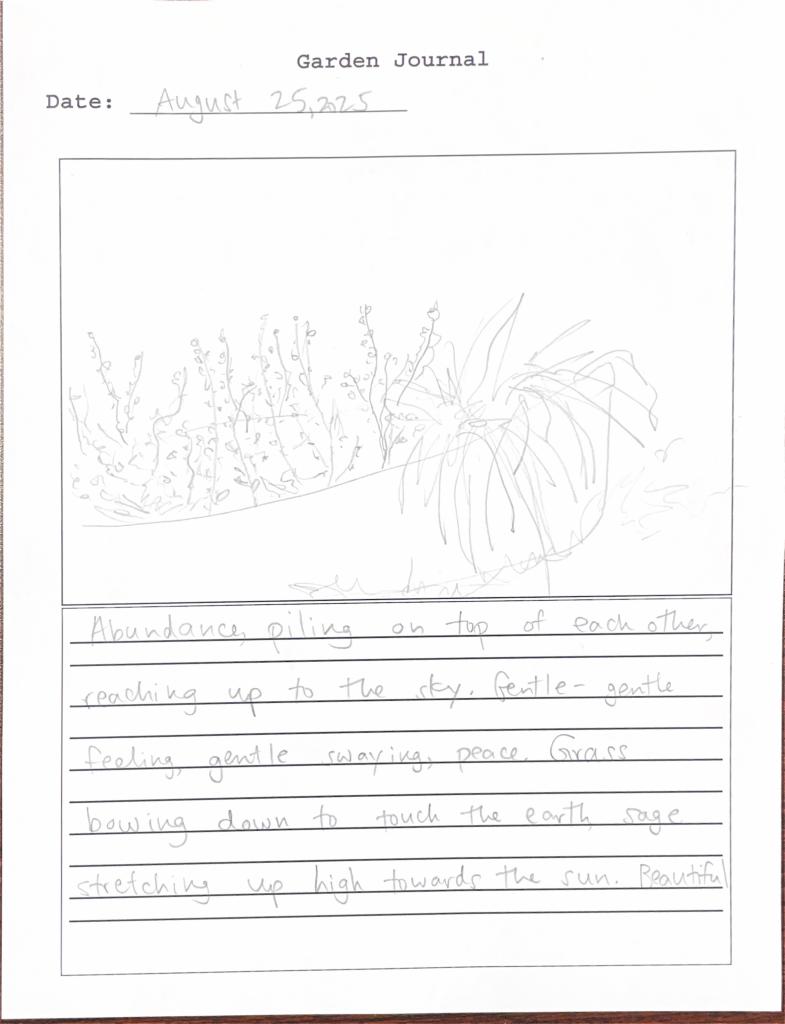 Garden Journal
Date: August 25, 2025
Abundance, piling on top of each other,
reaching up to the sky. Gentle- gentle
feeling, gentle swaying, peace. Grass
bowing down to touch the earth, sage
stretching up high towards the sun. Beautiful